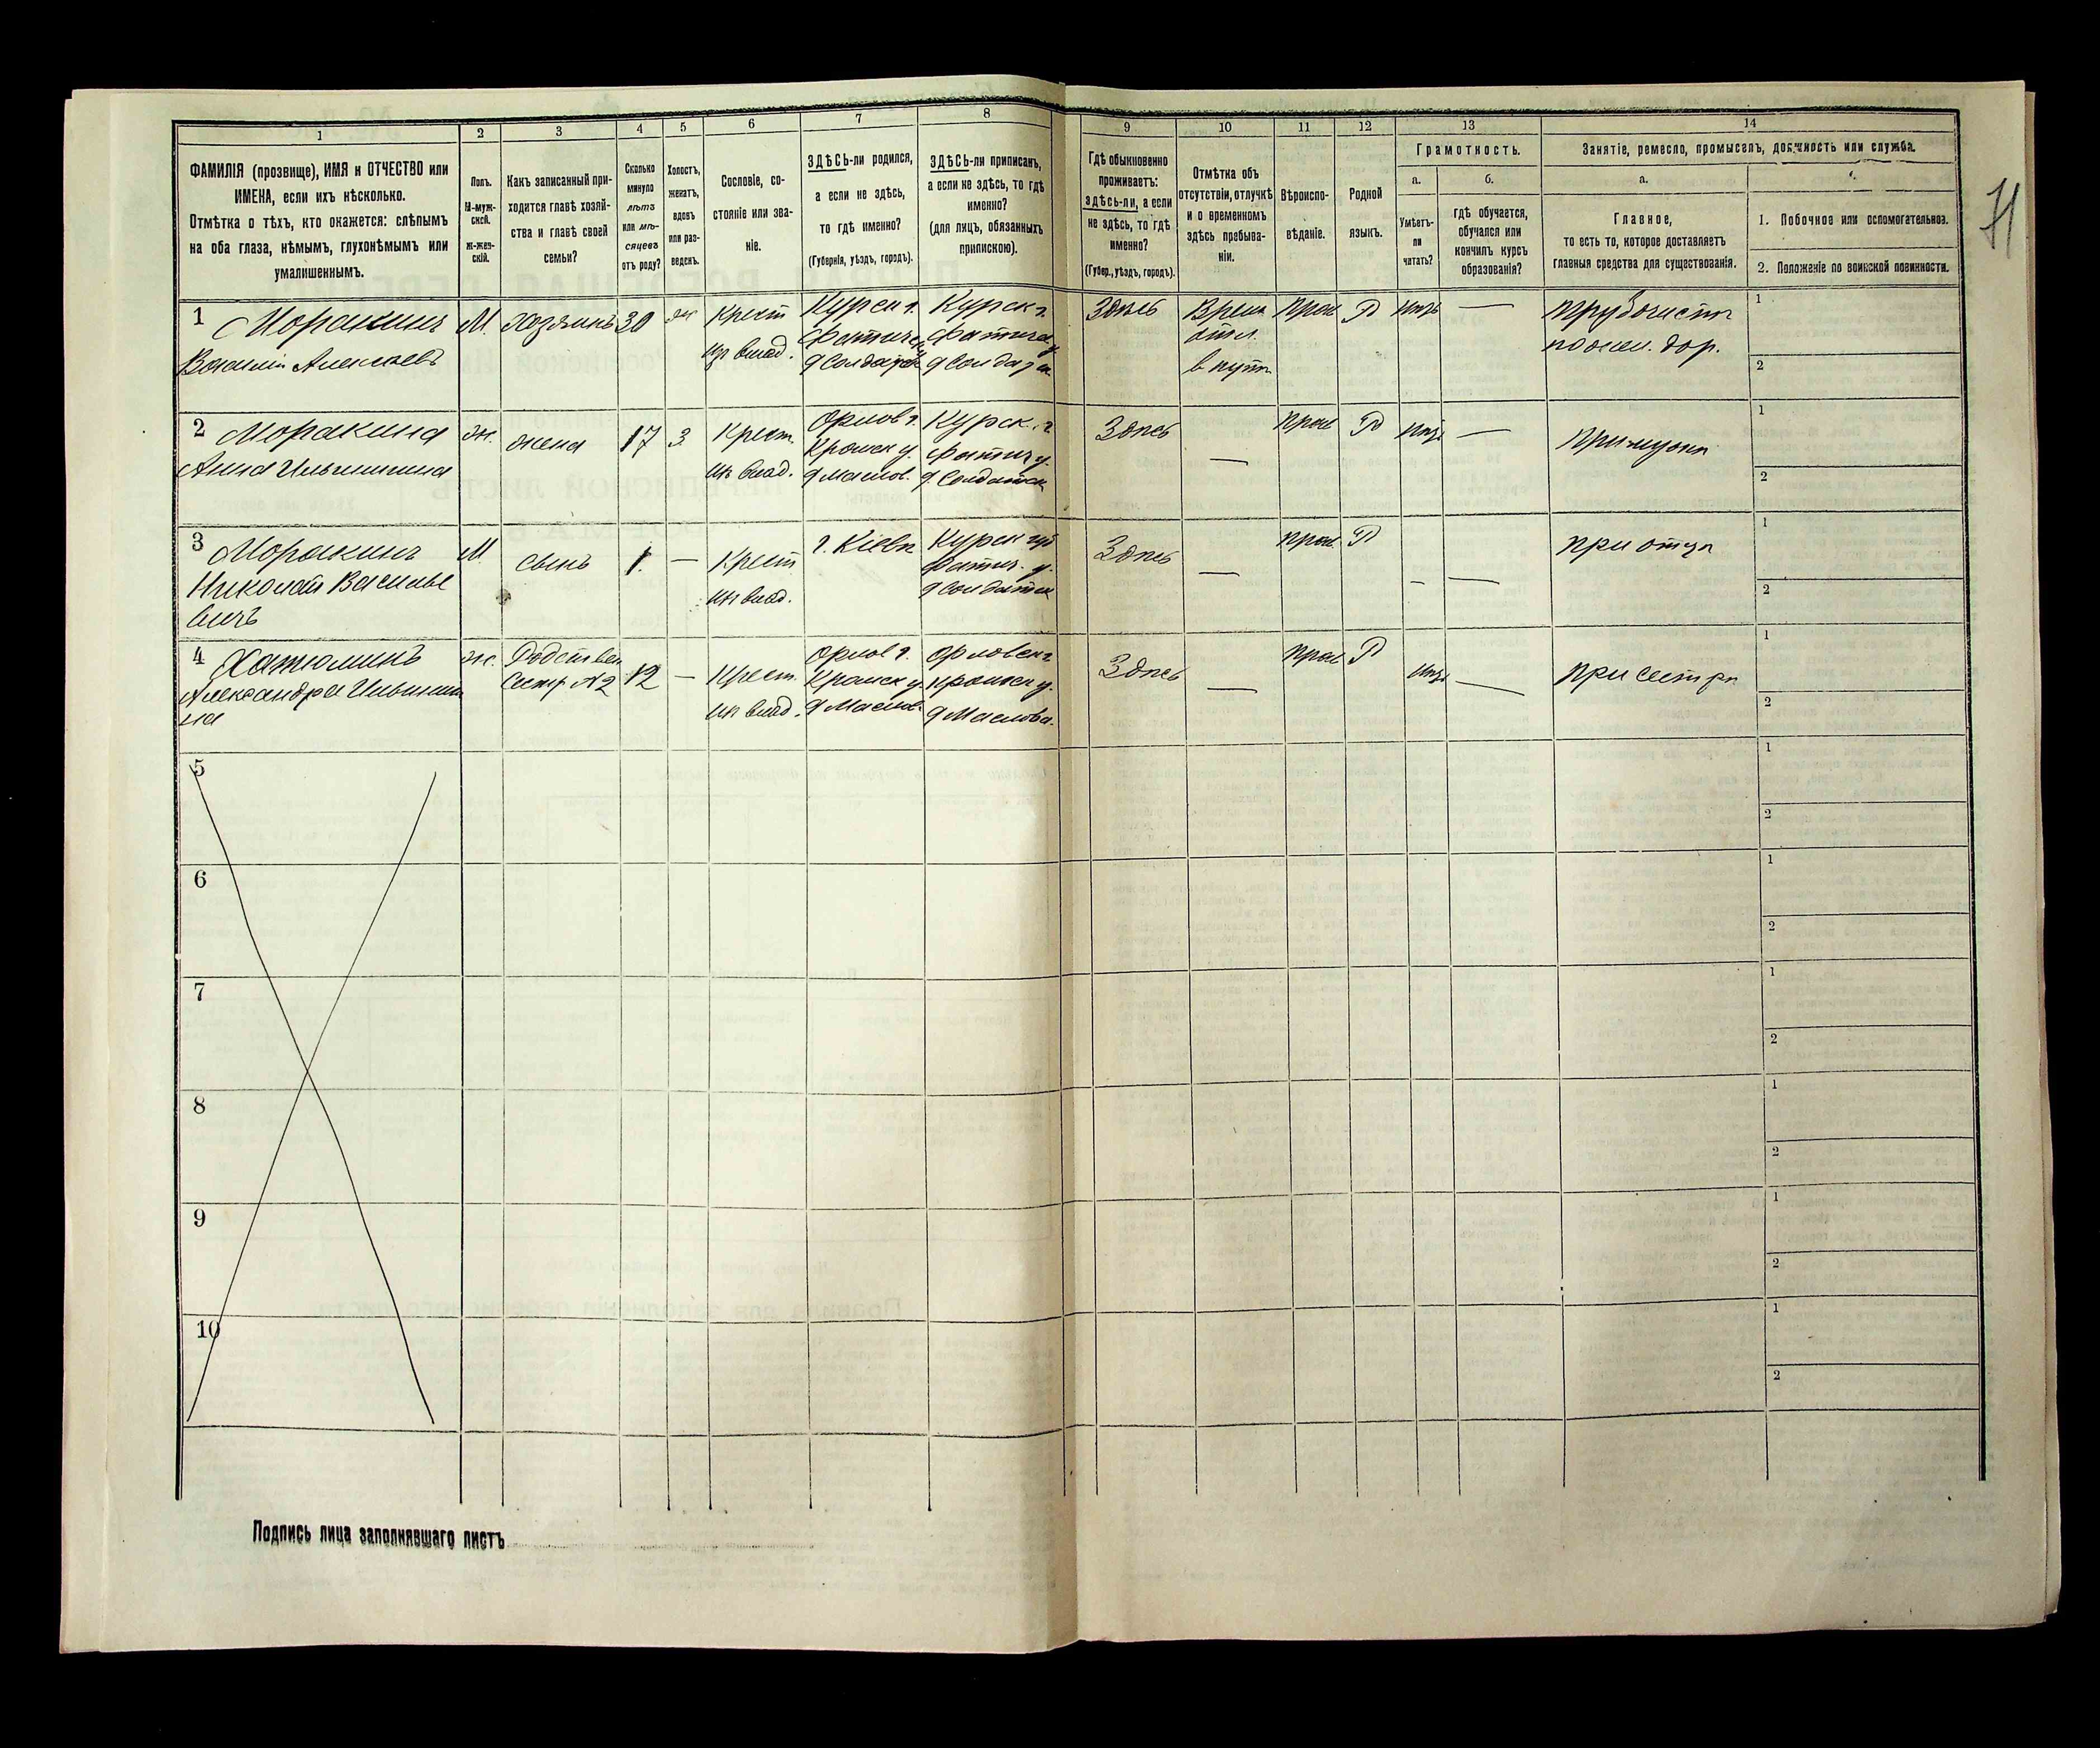 1 2 3 4 5 6 7 8 9 10 11 12 13 14
ФАМИЛІЯ (прозвище), ИМЯ и ОТЧЕСТВО или
ИМЕНА, если ихъ нѣсколько.
Отмѣтка о тѣхъ, кто окажется: слѣпымъ
на оба глаза, нѣмымъ, глухонѣмымъ или
умалишеннымъ.
Полъ.
М-муж-
ской.
Ж-жен-
скій.
Какъ записанный при-
ходится главѣ хозяй-
ства и главѣ своей
семьи?
Сколько
минуло
лѣтъ
или мѣ-
сяцевъ
отъ роду?
Холостъ,
женатъ,
вдовъ
или раз-
веденъ.
Сословіе, со-
стояніе или зва-
ніе.
ЗДѢСЬ-ли родился,
а если не здѣсь,
то гдѣ именно?
(Губернія, уѣздъ, городъ).
ЗДѢСЬ-ли приписанъ,
а если не здѣсь, то гдѣ
именно?
(для лицъ, обязанныхъ
припискою).
Гдѣ обыкновенно
проживаетъ:
здѣсь-ли, а если
не здѣсь, то гдѣ
именно?
(Губер., уѣздъ, городъ).
Отмѣтка объ
отсутствіи, отлучкѣ
и о временномъ
здѣсь пребыва-
ніи.
Вѣроиспо-
вѣданіе.
Родной
языкъ.
Грамотность.
а.
Умѣетъ-
ли
читать?
б.
гдѣ обучается,
обучался или
кончилъ курсъ
образованія?
Занятіе, ремесло, промыселъ, должность или служба.
а.
Главное,
то есть то, которое доставляетъ
главныя средства для существованія.
1. Побочное или вспомогательное.
2. Положеніе по воинской повинности.
1
Василій Алексѣевъ
М.
Хозяинъ
30
ж
Крест
из влад.
Курск г.
д Солдатск
Курск г.
Здѣсь
Врем
отл.
в пути
прав
Р
трубочистъ
по жел. дор.
1
2
2
Анна Ильинична
ж.
жена
17
З
Крест.
из влад.
Орлов г.
Кромск у.
д Маслов.
Курск. г.
Фатиж у.
д Солдатск
Здѣсь
—
прав
Р
—
при мужѣ
1
2
3
Николай Василье
вичъ
М
сынъ
1.
—
Крест
из влад.
г. Кіевѣ
Курск губ
Фатиж. у.
д Солдатск
Здѣсь
—
прав.
Р
—
—
при отцѣ
1
2
4
Александра Ильинич
на
ж.
Родствен
Сестр №2
12
—
Крест.
из влад.
Орлов г.
Кромск у.
д Маслов.
Орловск г
Кромск у.
д Маслова.
Здѣсь
—
прав
Р
—
при сестрѣ
1
2
5
1
2
6
1
2
7
1
2
8
1
2
9
1
2
10
1
2
Подпись лица заполнявшаго листъ